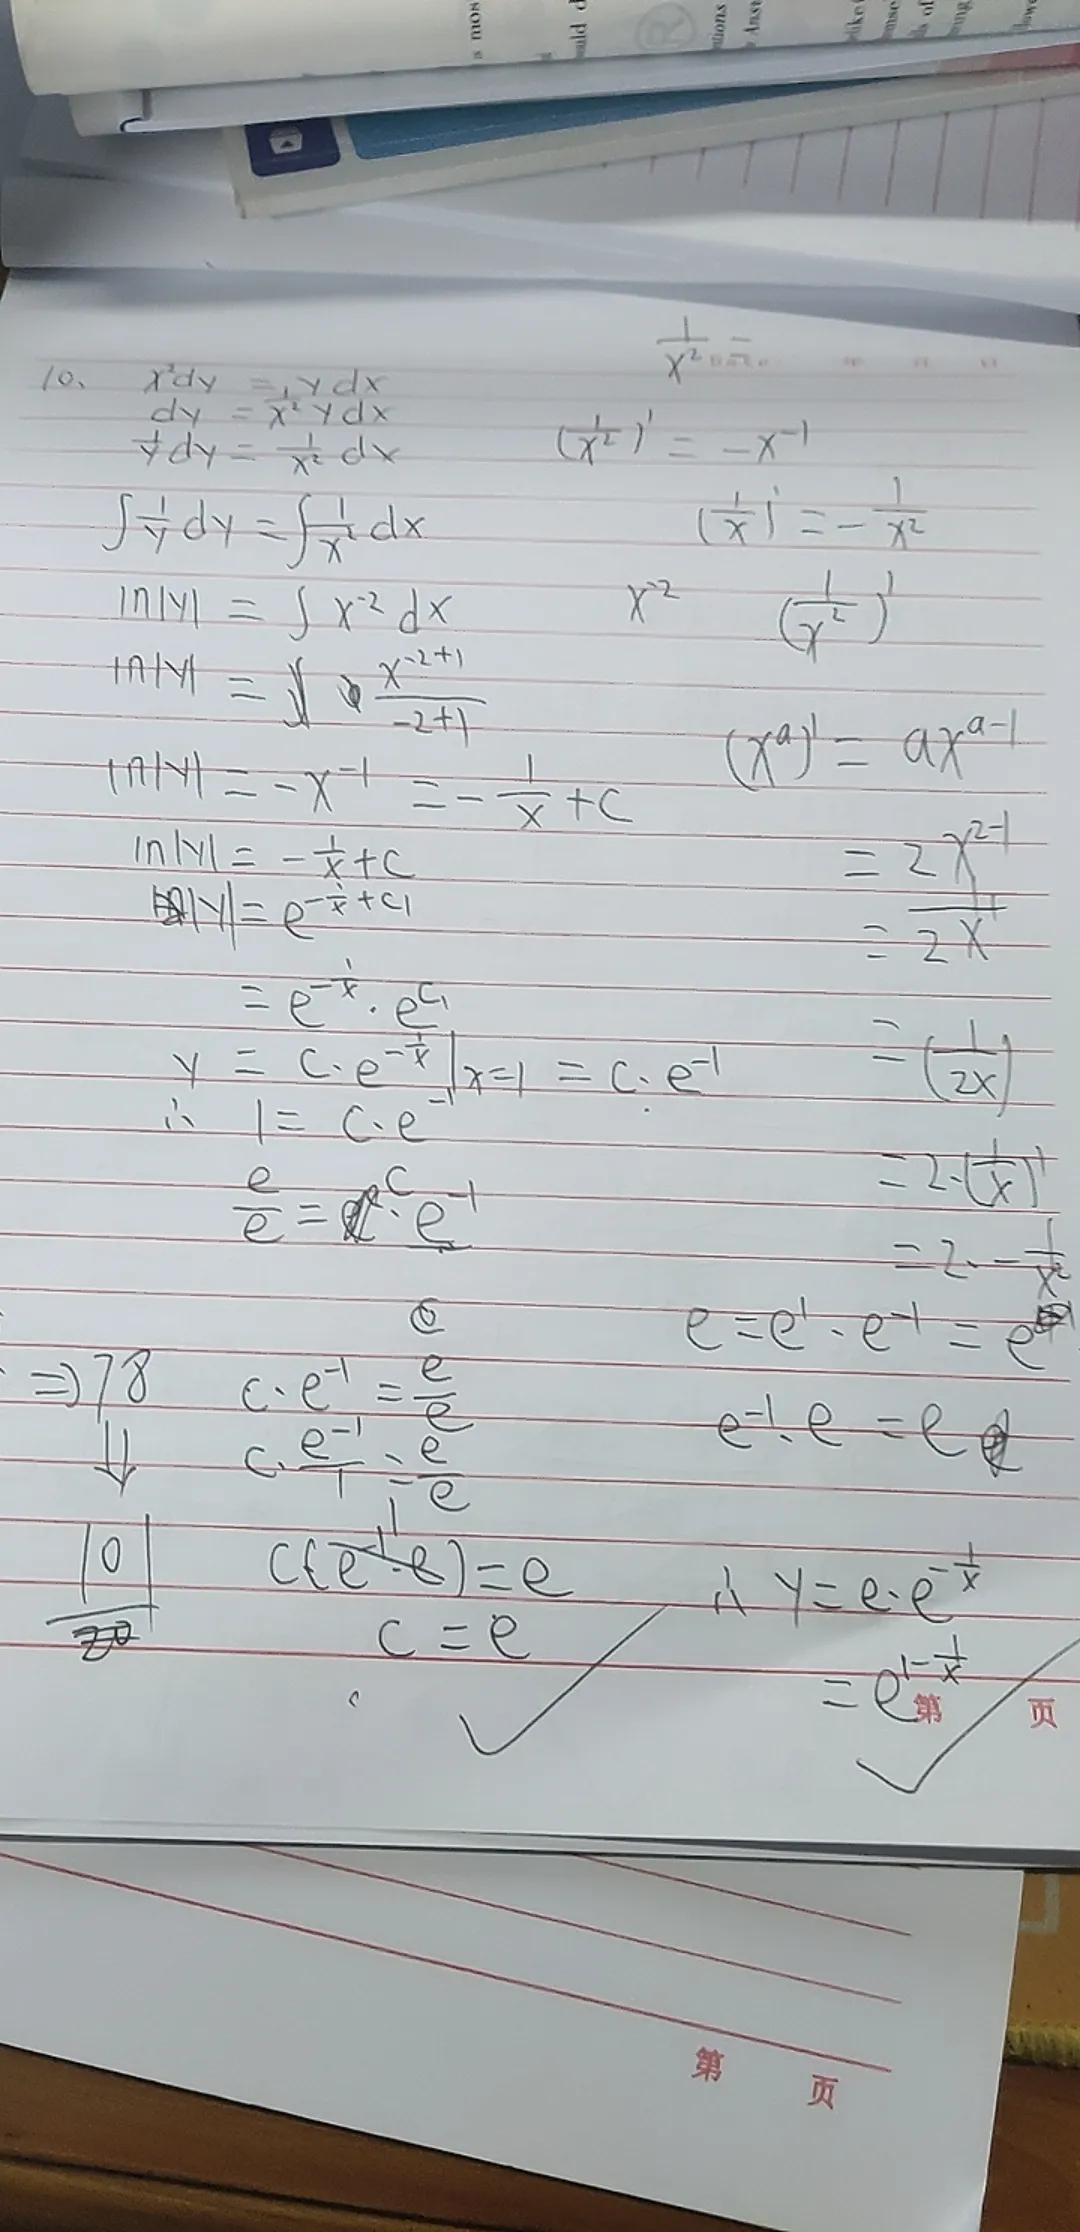 s mos
uld d
tions
Answ
10. x²dy = y dx
dy = 1/x² y dx
1/y dy = 1/x² dx
∫ 1/y dy = ∫ 1/x² dx
ln|y| = ∫ x⁻² dx
ln|y| = x⁻²⁺¹/-2+1
ln|y| = -x⁻¹ = -1/x + C
ln|y| = -1/x + C
|y| = e^(-1/x + C₁)
= e^(-1/x) · e^(C₁)
y = C·e^(-1/x) |x=1 = C·e⁻¹
∴ 1 = C·e⁻¹
e/e = C·e⁻¹
C·e⁻¹ = e/e
C·e⁻¹/1 = e/e
C(e⁻¹·e) = e
C = e
⇒ 78
⇓
10
1/x² =
(1/x²)' = -x⁻¹
(1/x)' = -1/x²
x⁻² (1/x²)'
(xᵃ)' = axᵃ⁻¹
= 2x²⁻¹
= 1/2x
= (1/2x)
= 2·(1/x)'
= 2·-1/x²
e = e¹·e⁻¹ = e
e⁻¹·e = e
∴ y = e·e^(-1/x)
= e^(1-1/x)
第 页
第 页